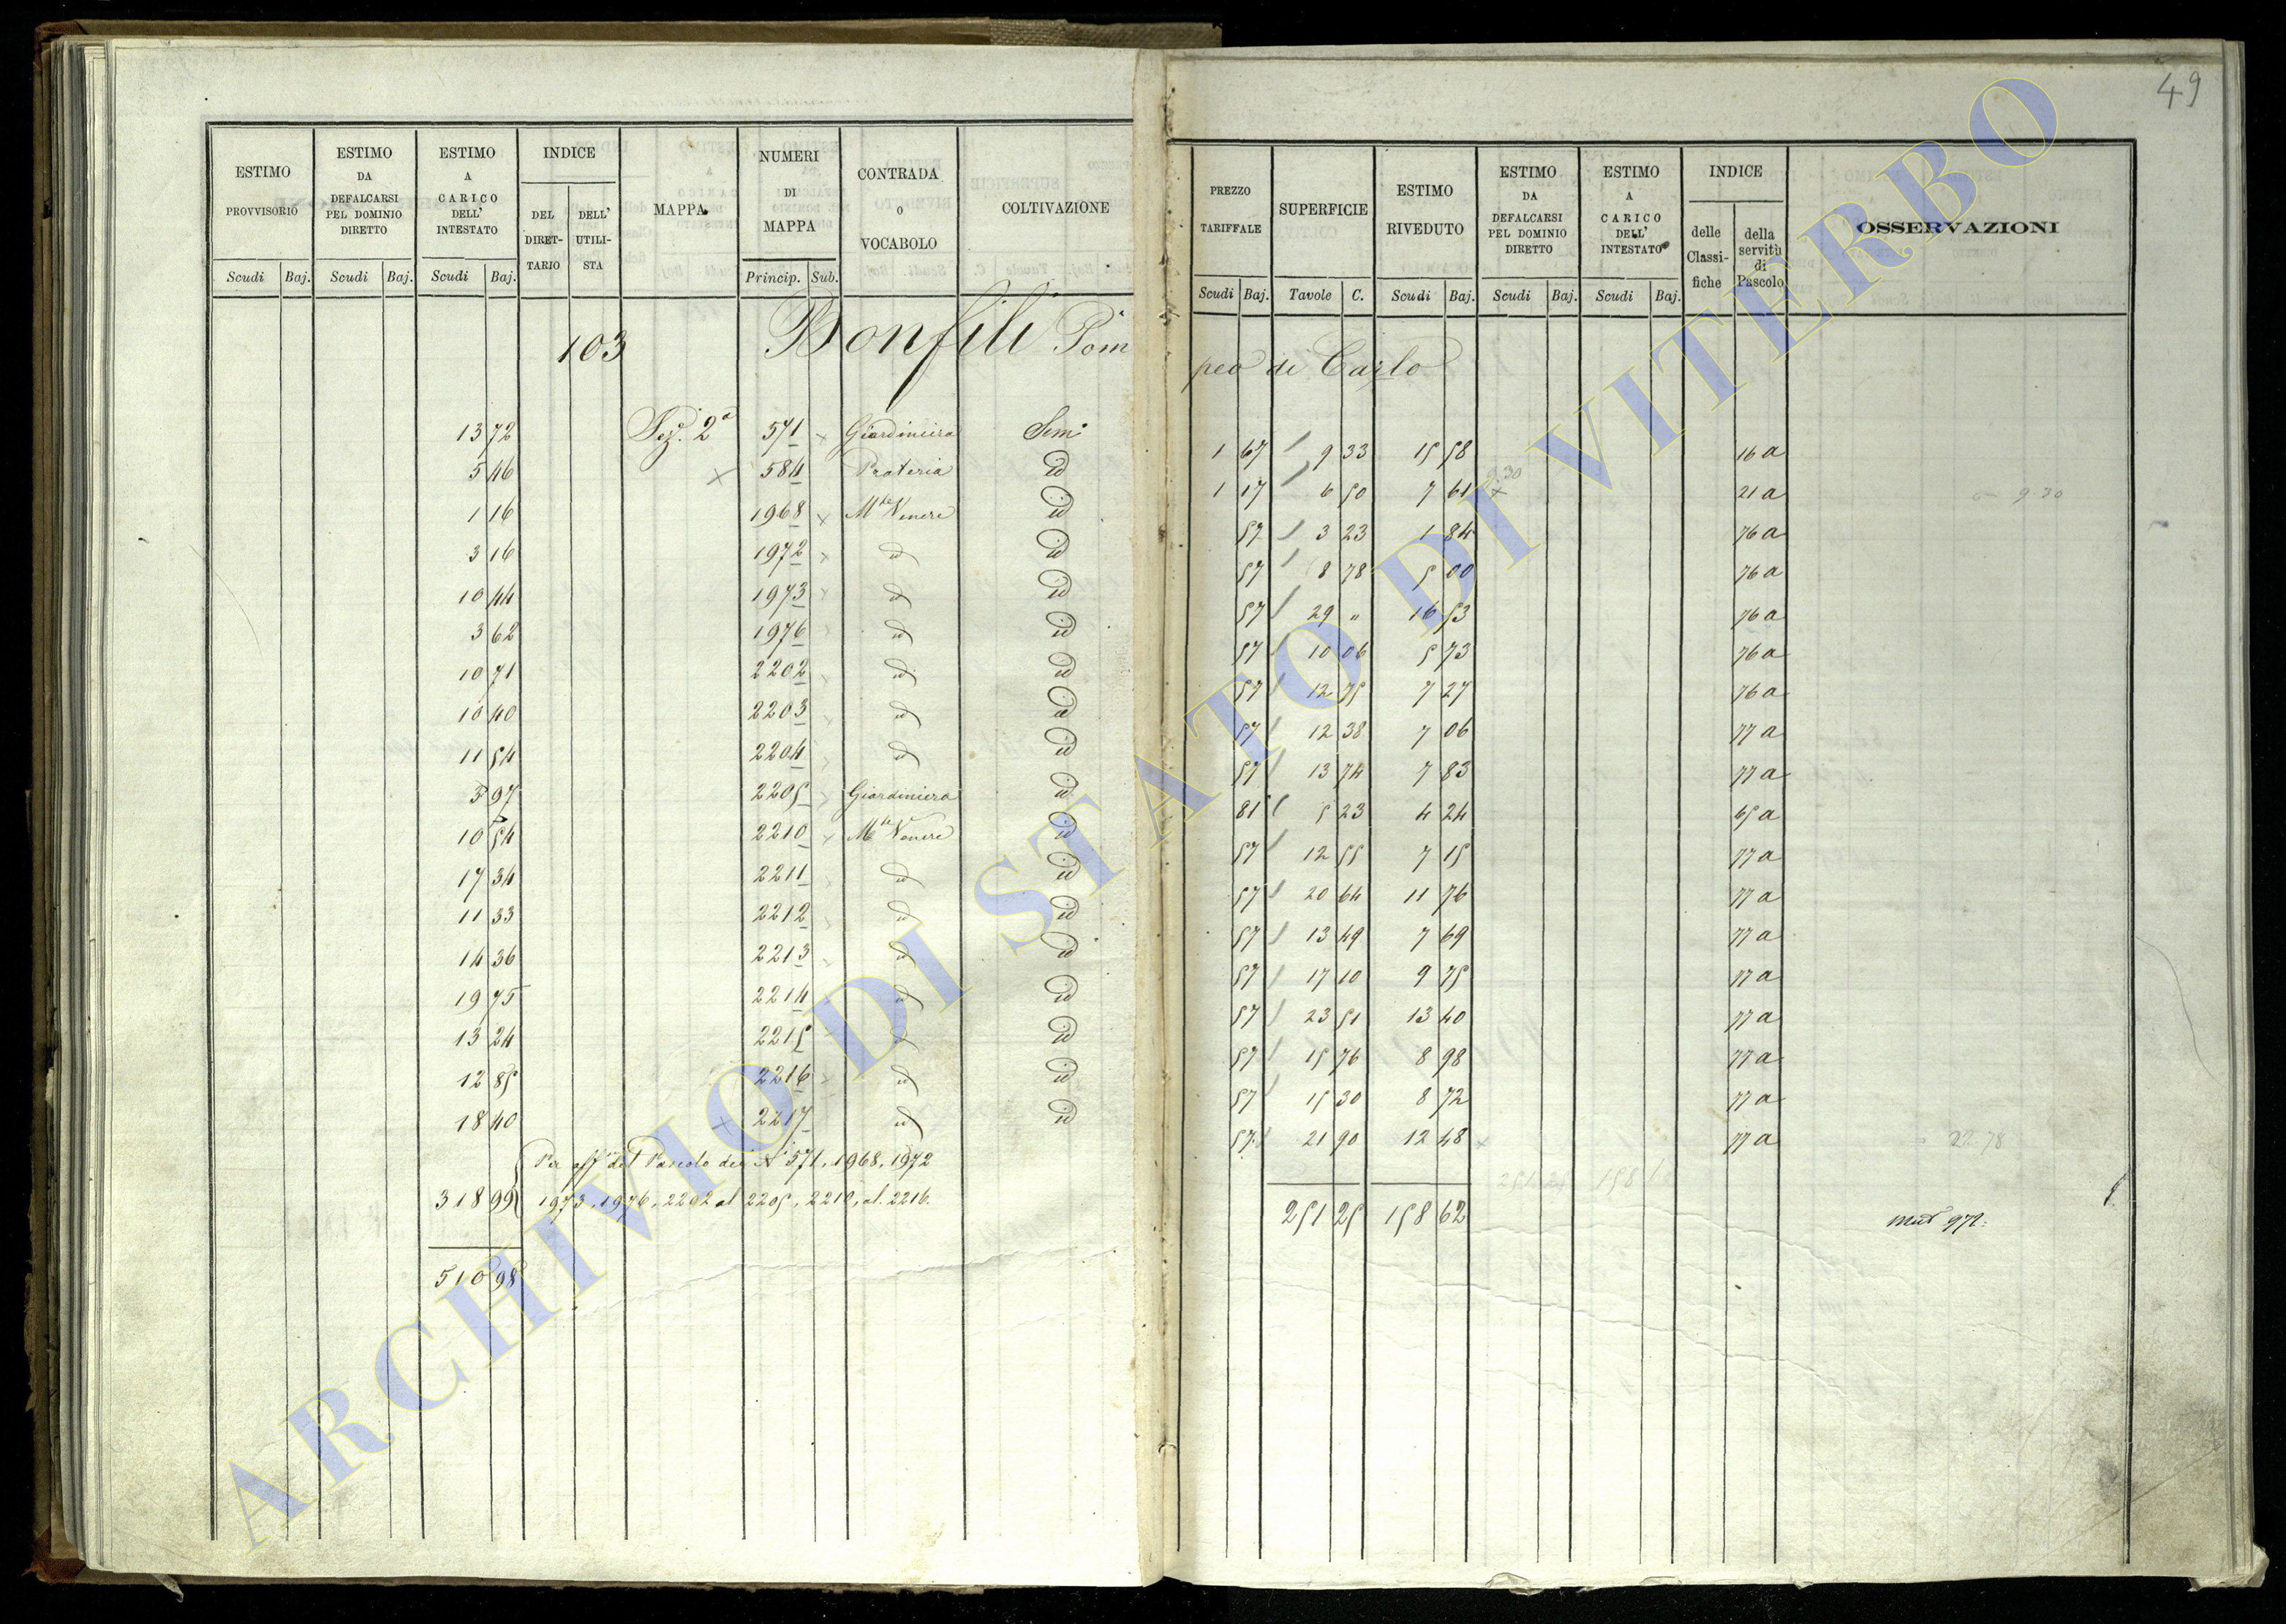 49
ESTIMO PROVVISORIO | ESTIMO DA DEFALCARSI PEL DOMINIO DIRETTO | ESTIMO A CARICO DELL' INTESTATO | INDICE | MAPPA. | NUMERI DI MAPPA | CONTRADA o VOCABOLO | COLTIVAZIONE | PREZZO TARIFFALE | SUPERFICIE | ESTIMO RIVEDUTO | ESTIMO DA DEFALCARSI PEL DOMINIO DIRETTO | ESTIMO A CARICO DELL' INTESTATO | INDICE | OSSERVAZIONI
DEL DIRETTARIO | DELL' UTILISTA | delle Classifiche | della servitù di Pascolo
Scudi | Baj. | Scudi | Baj. | Scudi | Baj. | Princip. | Sub. | Scudi | Baj. | Tavole | C. | Scudi | Baj. | Scudi | Baj. | Scudi | Baj.
103 Bonfili Pompeo di Carlo
13 72 | Sez. 2a | 571 | Giardiniera | Sem. | 1 67 | 9 33 | 15 58 | 16 a
5 46 | 584 | Prateria | id | 1 17 | 6 50 | 7 61 | 21 a | 9.30
1 16 | 1968 | Mte Venere | id | 57 | 3 23 | 1 84 | 76 a
3 16 | 1972 | id | id | 57 | 8 78 | 5 00 | 76 a
10 44 | 1973 | id | id | 57 | 29 " | 16 53 | 76 a
3 62 | 1976 | id | id | 57 | 10 06 | 5 73 | 76 a
10 71 | 2202 | id | id | 57 | 12 75 | 7 27 | 76 a
10 40 | 2203 | id | id | 57 | 12 38 | 7 06 | 77 a
11 54 | 2204 | id | id | 57 | 13 74 | 7 83 | 77 a
3 97 | 2205 | Giardiniera | id | 81 | 5 23 | 4 24 | 65 a
10 54 | 2210 | Mte Venere | id | 57 | 12 55 | 7 15 | 77 a
17 34 | 2211 | id | id | 57 | 20 64 | 11 76 | 77 a
11 33 | 2212 | id | id | 57 | 13 49 | 7 69 | 77 a
14 36 | 2213 | id | id | 57 | 17 10 | 9 75 | 77 a
19 75 | 2214 | id | id | 57 | 23 51 | 13 40 | 77 a
13 24 | 2215 | id | id | 57 | 15 76 | 8 98 | 77 a
12 85 | 2216 | id | id | 57 | 15 30 | 8 72 | 77 a
18 40 | 2217 | id | id | 57 | 21 90 | 12 48 | 77 a | 22 78
Per del Pascolo dei Ni 571, 1968, 1972
318 99 | 1973, 1976, 2202 al 2205, 2210, al 2216.
251 25 | 158 62 | mut 972
510 98
ARCHIVIO DI STATO DI VITERBO